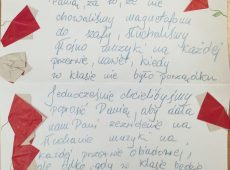 Panią, za to, że nie
chowaliśmy magnetofonu
do szafy, słuchaliśmy
głośno muzyki na każdej
przerwie, nawet, kiedy
w klasie nie było porządku.
Jednocześnie chcielibyśmy
poprosić Panią, aby dała
nam Pani zezwolenie na
słuchanie muzyki na
każdej przerwie obiadowej,
ale tylko gdy w klasie będzie